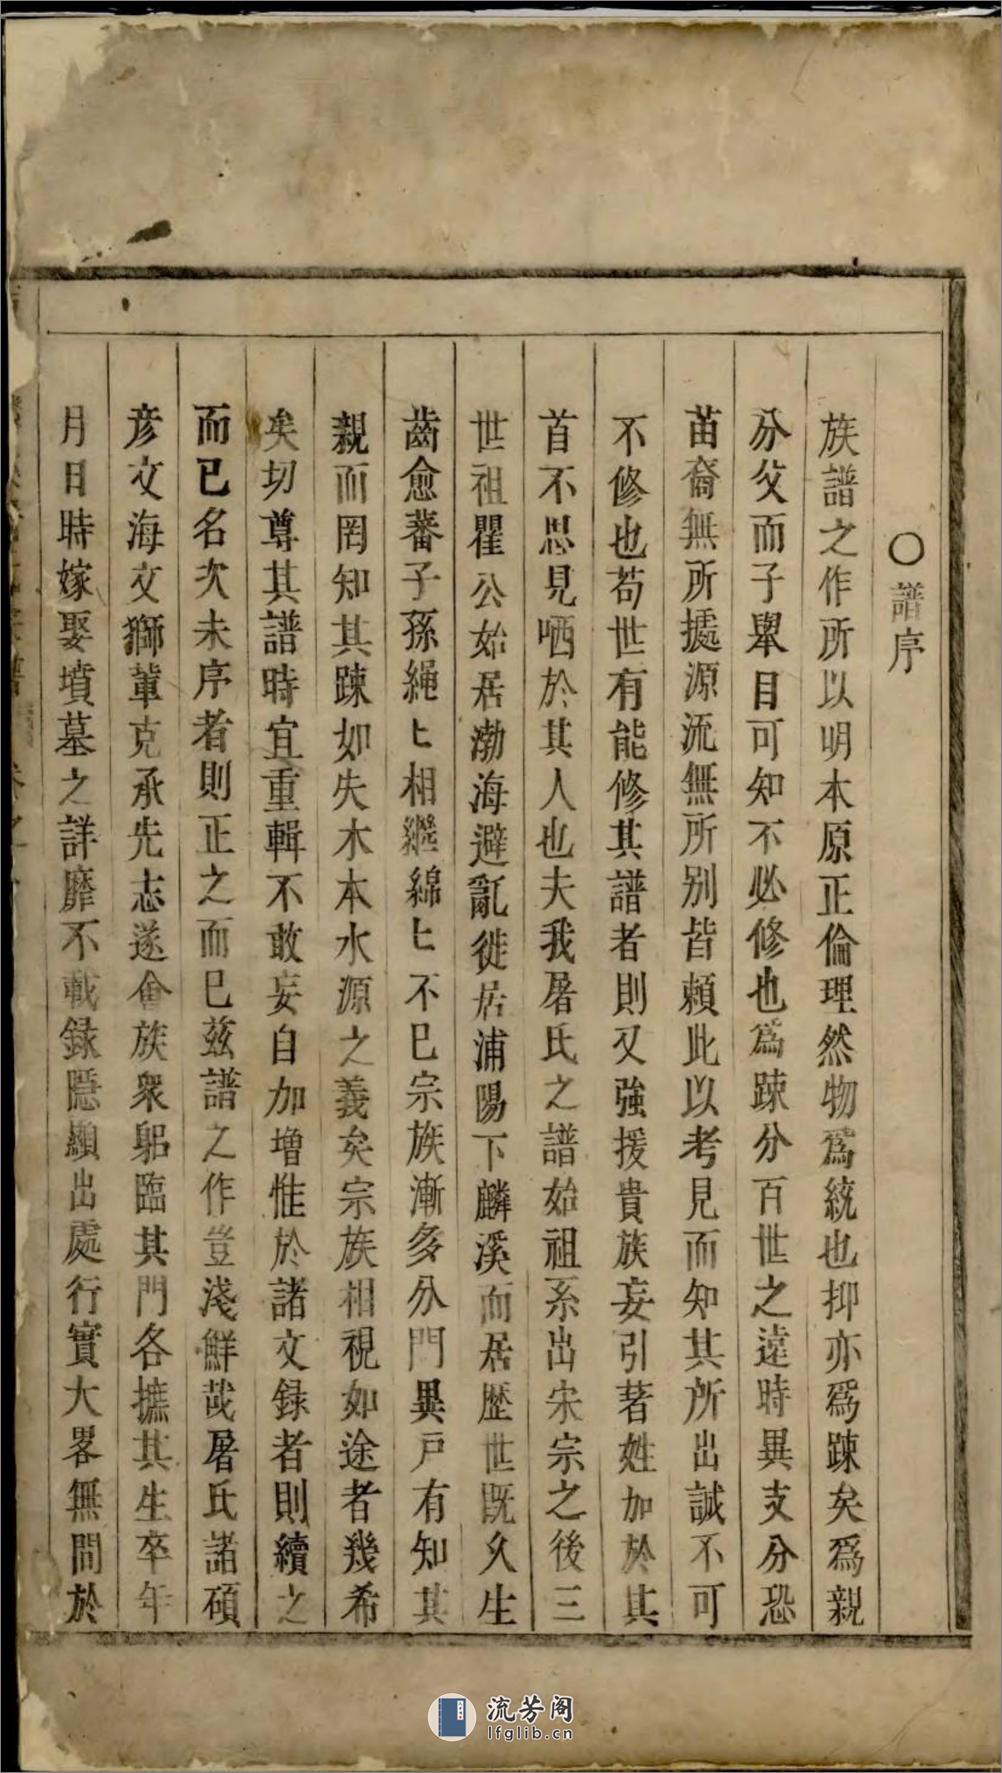 〇譜序
族譜之作所以明本原正倫理然物爲統也抑亦爲踈矣爲親
分父而子舉目可知不必修也爲踈分百世之遠時異支分恐
苗裔無所據源流無所别皆賴此以考見而知其所出誠不可
不修也苟世有能修其譜者則又強援貴族妄引著姓加於其
首不思見哂於其人也夫我屠氏之譜始祖系出宋宗之後三
世祖瞿公始居渤海避亂徙居浦陽下麟溪而居歴世既久生
齒愈蕃子孫繩〻相繼綿〻不已宗族漸多分門異戸有知其
親而罔知其踈如失木本水源之義矣宗族相視如途者幾希
矣切尊其譜時宜重輯不敢妄自加增惟於諸文録者則續之
而已名次未序者則正之而已兹譜之作豈淺鮮哉屠氏諾碩
彦文海文獅軰克承先志遂會族衆躬臨其門各摭其生卒年
月日時嫁娶墳墓之詳靡不載録隱顯出處行實大畧無問於
流芳阁
lfglib.cn